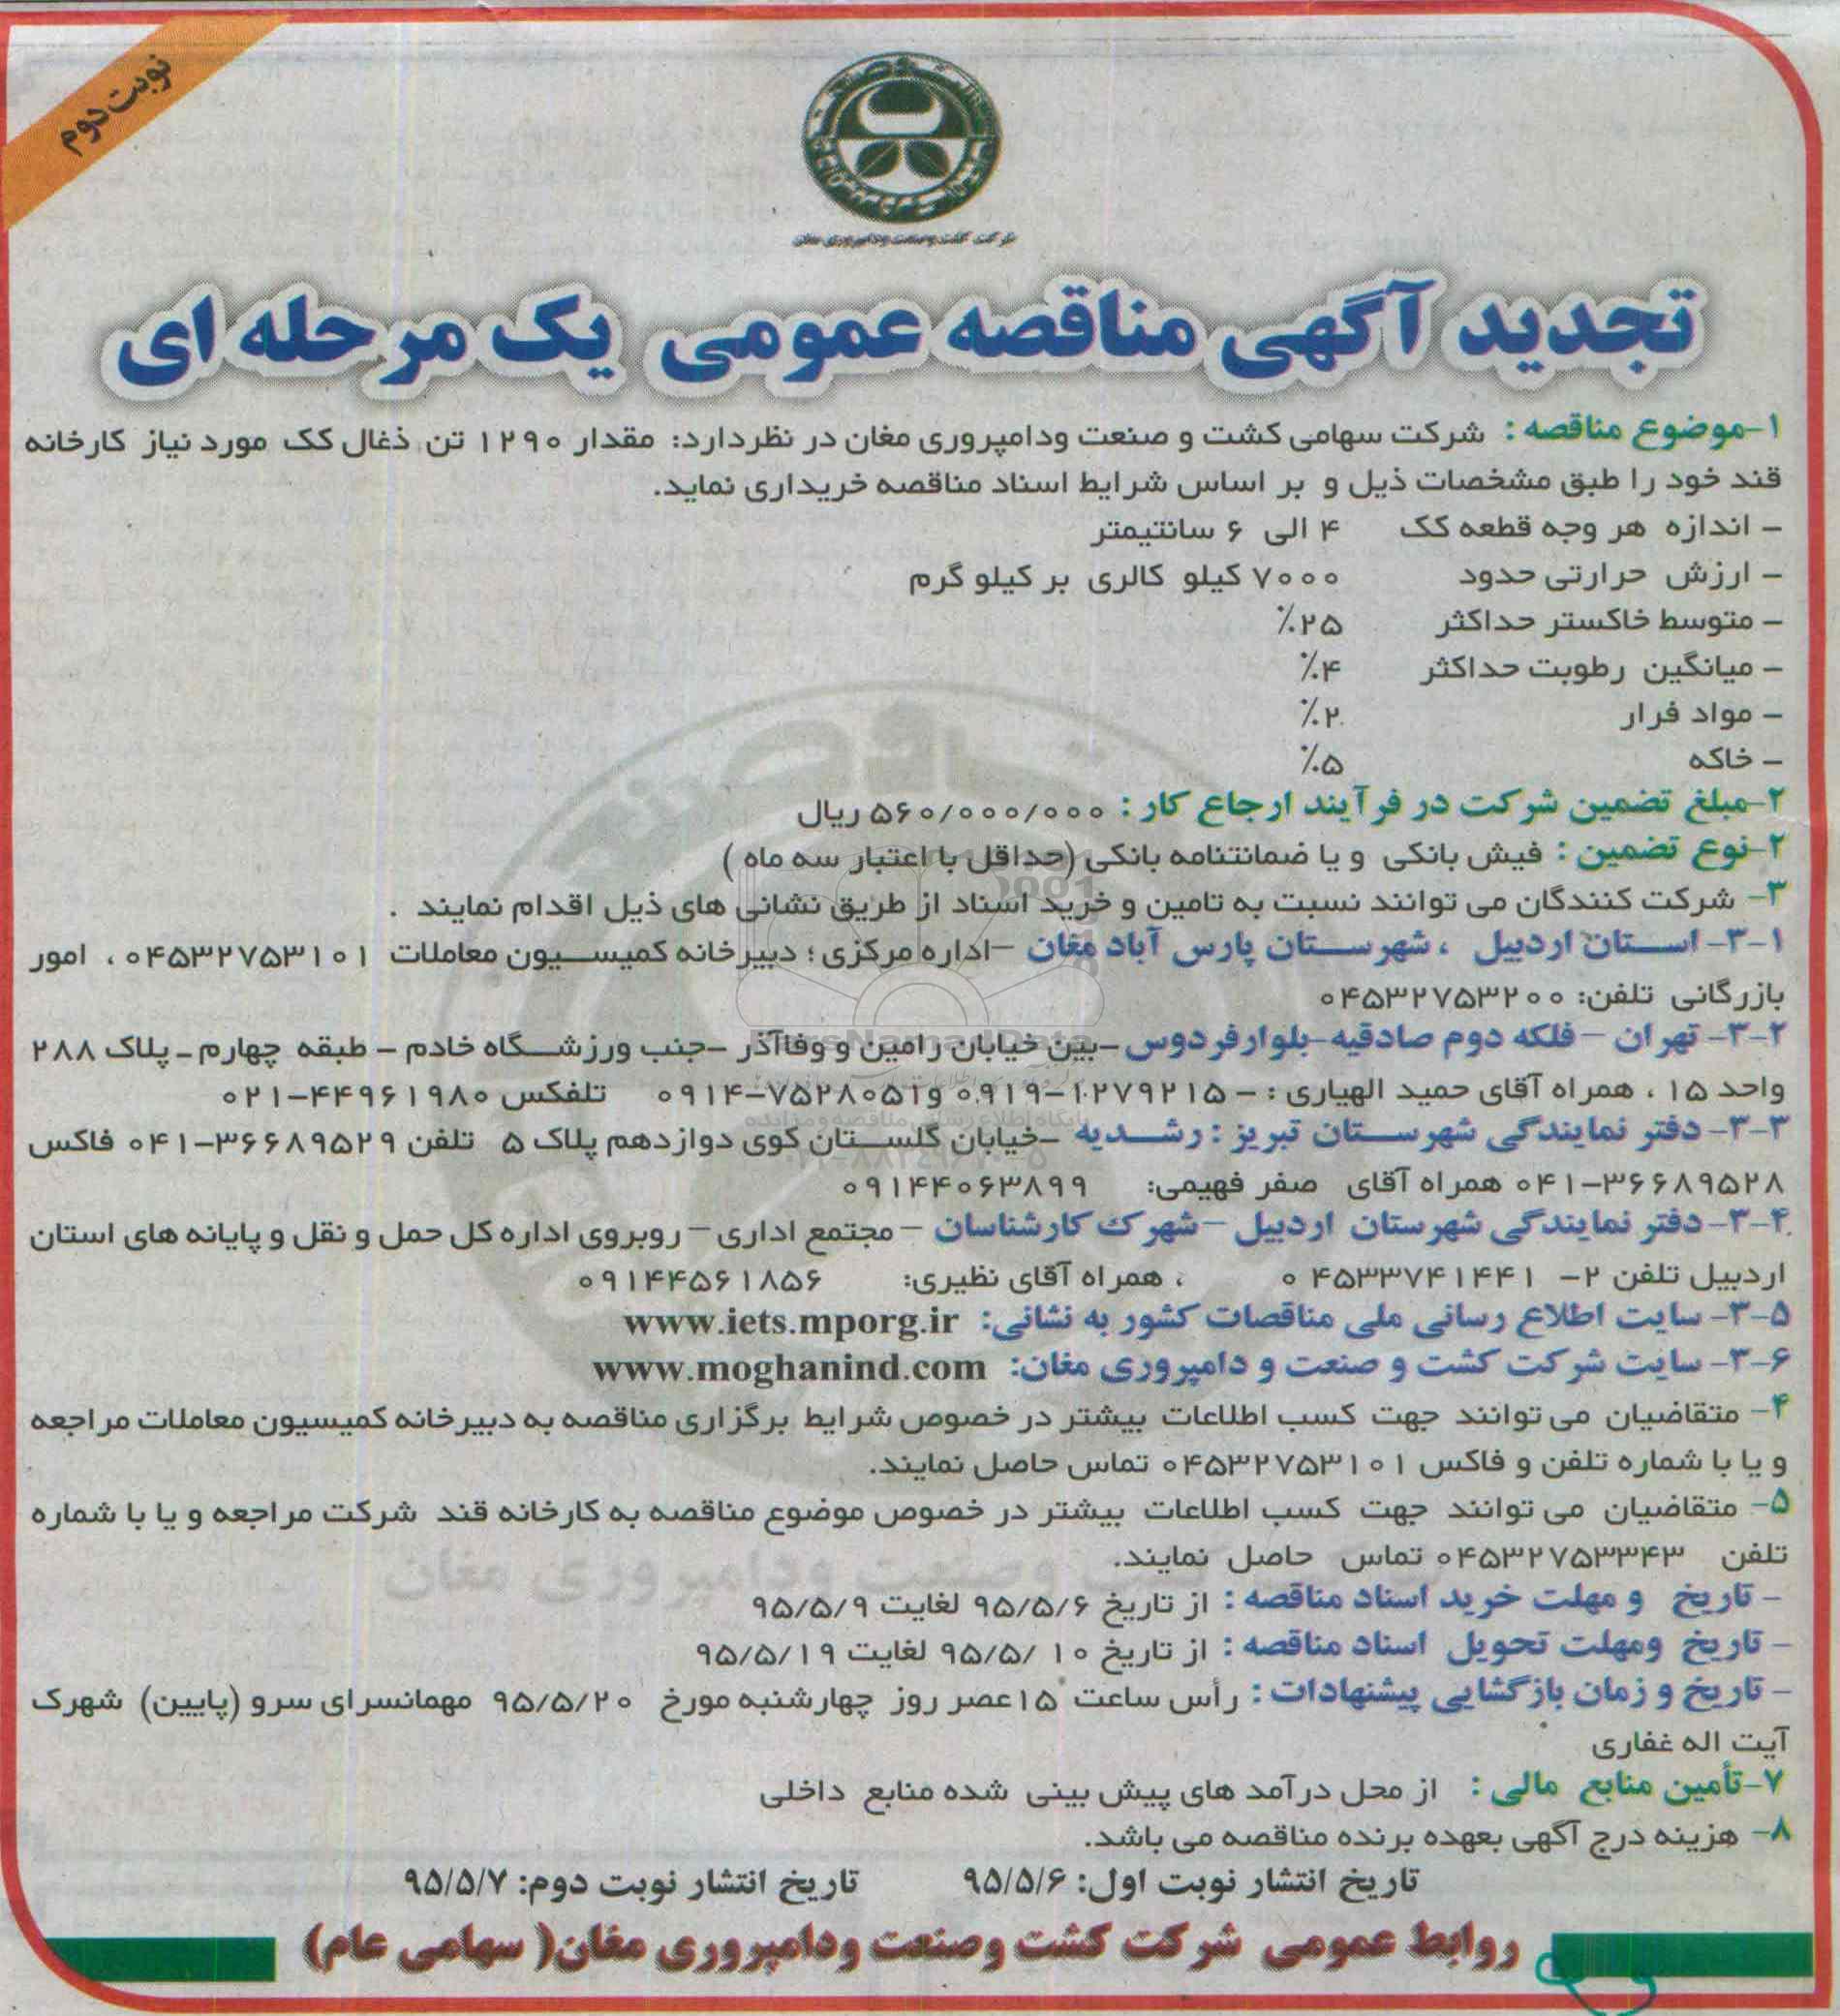 نوبت دوم
شرکت کشت وصنعت ودامپروری مغان
تجدید آگهی مناقصه عمومی یک مرحله ای
۱-موضوع مناقصه : شرکت سهامی کشت و صنعت ودامپروری مغان در نظردارد: مقدار ۱۲۹۰ تن ذغال کک مورد نیاز کارخانه
قند خود را طبق مشخصات ذیل و بر اساس شرایط اسناد مناقصه خریداری نماید.
- اندازه هر وجه قطعه کک ۴ الی ۶ سانتیمتر
- ارزش حرارتی حدود ۷۰۰۰ کیلو کالری بر کیلو گرم
- متوسط خاکستر حداکثر ۲۵٪
- میانگین رطوبت حداکثر ۴٪
- مواد فرار ۲٪
- خاکه ۵٪
۲-مبلغ تضمین شرکت در فرآیند ارجاع کار : ۵۶۰/۰۰۰/۰۰۰ ریال
۲-نوع تضمین : فیش بانکی و یا ضمانتنامه بانکی (حداقل با اعتبار سه ماه )
۳- شرکت کنندگان می توانند نسبت به تامین و خرید اسناد از طریق نشانی های ذیل اقدام نمایند .
۳-۱- استان اردبیل ، شهرستان پارس آباد مغان -اداره مرکزی ؛ دبیرخانه کمیسیون معاملات ۰۴۵۳۲۷۵۳۱۰۱ ، امور
بازرگانی تلفن: ۰۴۵۳۲۷۵۳۲۰۰
۳-۲- تهران - فلکه دوم صادقیه-بلوارفردوس -بین خیابان رامین و وفاآذر -جنب ورزشگاه خادم - طبقه چهارم - پلاک ۲۸۸
واحد ۱۵ ، همراه آقای حمید الهیاری : - ۰۹۱۹-۱۲۷۹۲۱۵ و۰۹۱۴-۷۵۲۸۰۵۱ تلفکس ۰۲۱-۴۴۹۶۱۹۸۰
۳-۳- دفتر نمایندگی شهرستان تبریز : رشدیه -خیابان گلستان کوی دوازدهم پلاک ۵ تلفن ۰۴۱-۳۶۶۸۹۵۲۹ فاکس
۰۴۱-۳۶۶۸۹۵۲۸ همراه آقای صفر فهیمی: ۰۹۱۴۴۰۶۳۸۹۹
۳-۴- دفتر نمایندگی شهرستان اردبیل -شهرک کارشناسان - مجتمع اداری - روبروی اداره کل حمل و نقل و پایانه های استان
اردبیل تلفن ۲- ۰۴۵۳۳۷۴۱۴۴۱ ، همراه آقای نظیری: ۰۹۱۴۴۵۶۱۸۵۶
۳-۵- سایت اطلاع رسانی ملی مناقصات کشور به نشانی: www.iets.mporg.ir
۳-۶- سایت شرکت کشت و صنعت و دامپروری مغان: www.moghanind.com
۴- متقاضیان می توانند جهت کسب اطلاعات بیشتر در خصوص شرایط برگزاری مناقصه به دبیرخانه کمیسیون معاملات مراجعه
و یا با شماره تلفن و فاکس ۰۴۵۳۲۷۵۳۱۰۱ تماس حاصل نمایند.
۵- متقاضیان می توانند جهت کسب اطلاعات بیشتر در خصوص موضوع مناقصه به کارخانه قند شرکت مراجعه و یا با شماره
تلفن ۰۴۵۳۲۷۵۳۳۴۳ تماس حاصل نمایند.
- تاریخ و مهلت خرید اسناد مناقصه : از تاریخ ۹۵/۵/۶ لغایت ۹۵/۵/۹
- تاریخ ومهلت تحویل اسناد مناقصه : از تاریخ ۱۰ /۹۵/۵ لغایت ۹۵/۵/۱۹
- تاریخ و زمان بازگشایی پیشنهادات : رأس ساعت ۱۵عصر روز چهارشنبه مورخ ۹۵/۵/۲۰ مهمانسرای سرو (پایین) شهرک
آیت اله غفاری
۷-تأمین منابع مالی : از محل درآمد های پیش بینی شده منابع داخلی
۸- هزینه درج آگهی بعهده برنده مناقصه می باشد.
تاریخ انتشار نوبت اول: ۹۵/۵/۶ تاریخ انتشار نوبت دوم: ۹۵/۵/۷
روابط عمومی شرکت کشت وصنعت ودامپروری مغان( سهامی عام)